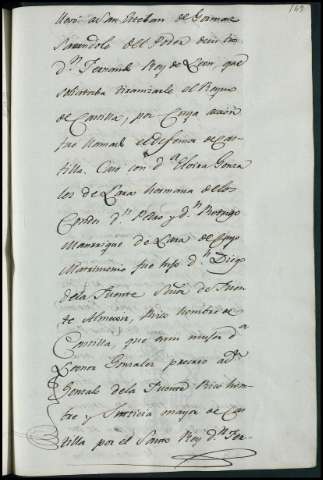 149
llevó a San Esteban de Gormaz
sacandole del Poder de su tio
Dn. Fernando Rey de Leon, que
solicitaba tiranizarle el Reyno
de Castilla, y por cuya accion
fue llamado el defensor de Cas-
tilla. Caso con da. Elvira Gonza
les de Lara hermana de los
Condes dn. Pedro y dn. Rodrigo
Manrrique de Lara de cuyo
Matrimonio fue hijo dn. Diego
de la Fuente Señor de Fuen-
te Almexir, Rico hombre de
Castilla, que en da.
Leonor Gonzales procreo a dn.
Gonzalo de la Fuente Rico hom-
bre y Justicia mayor de Cas
tilla por el Santo Rey dn. Fer-